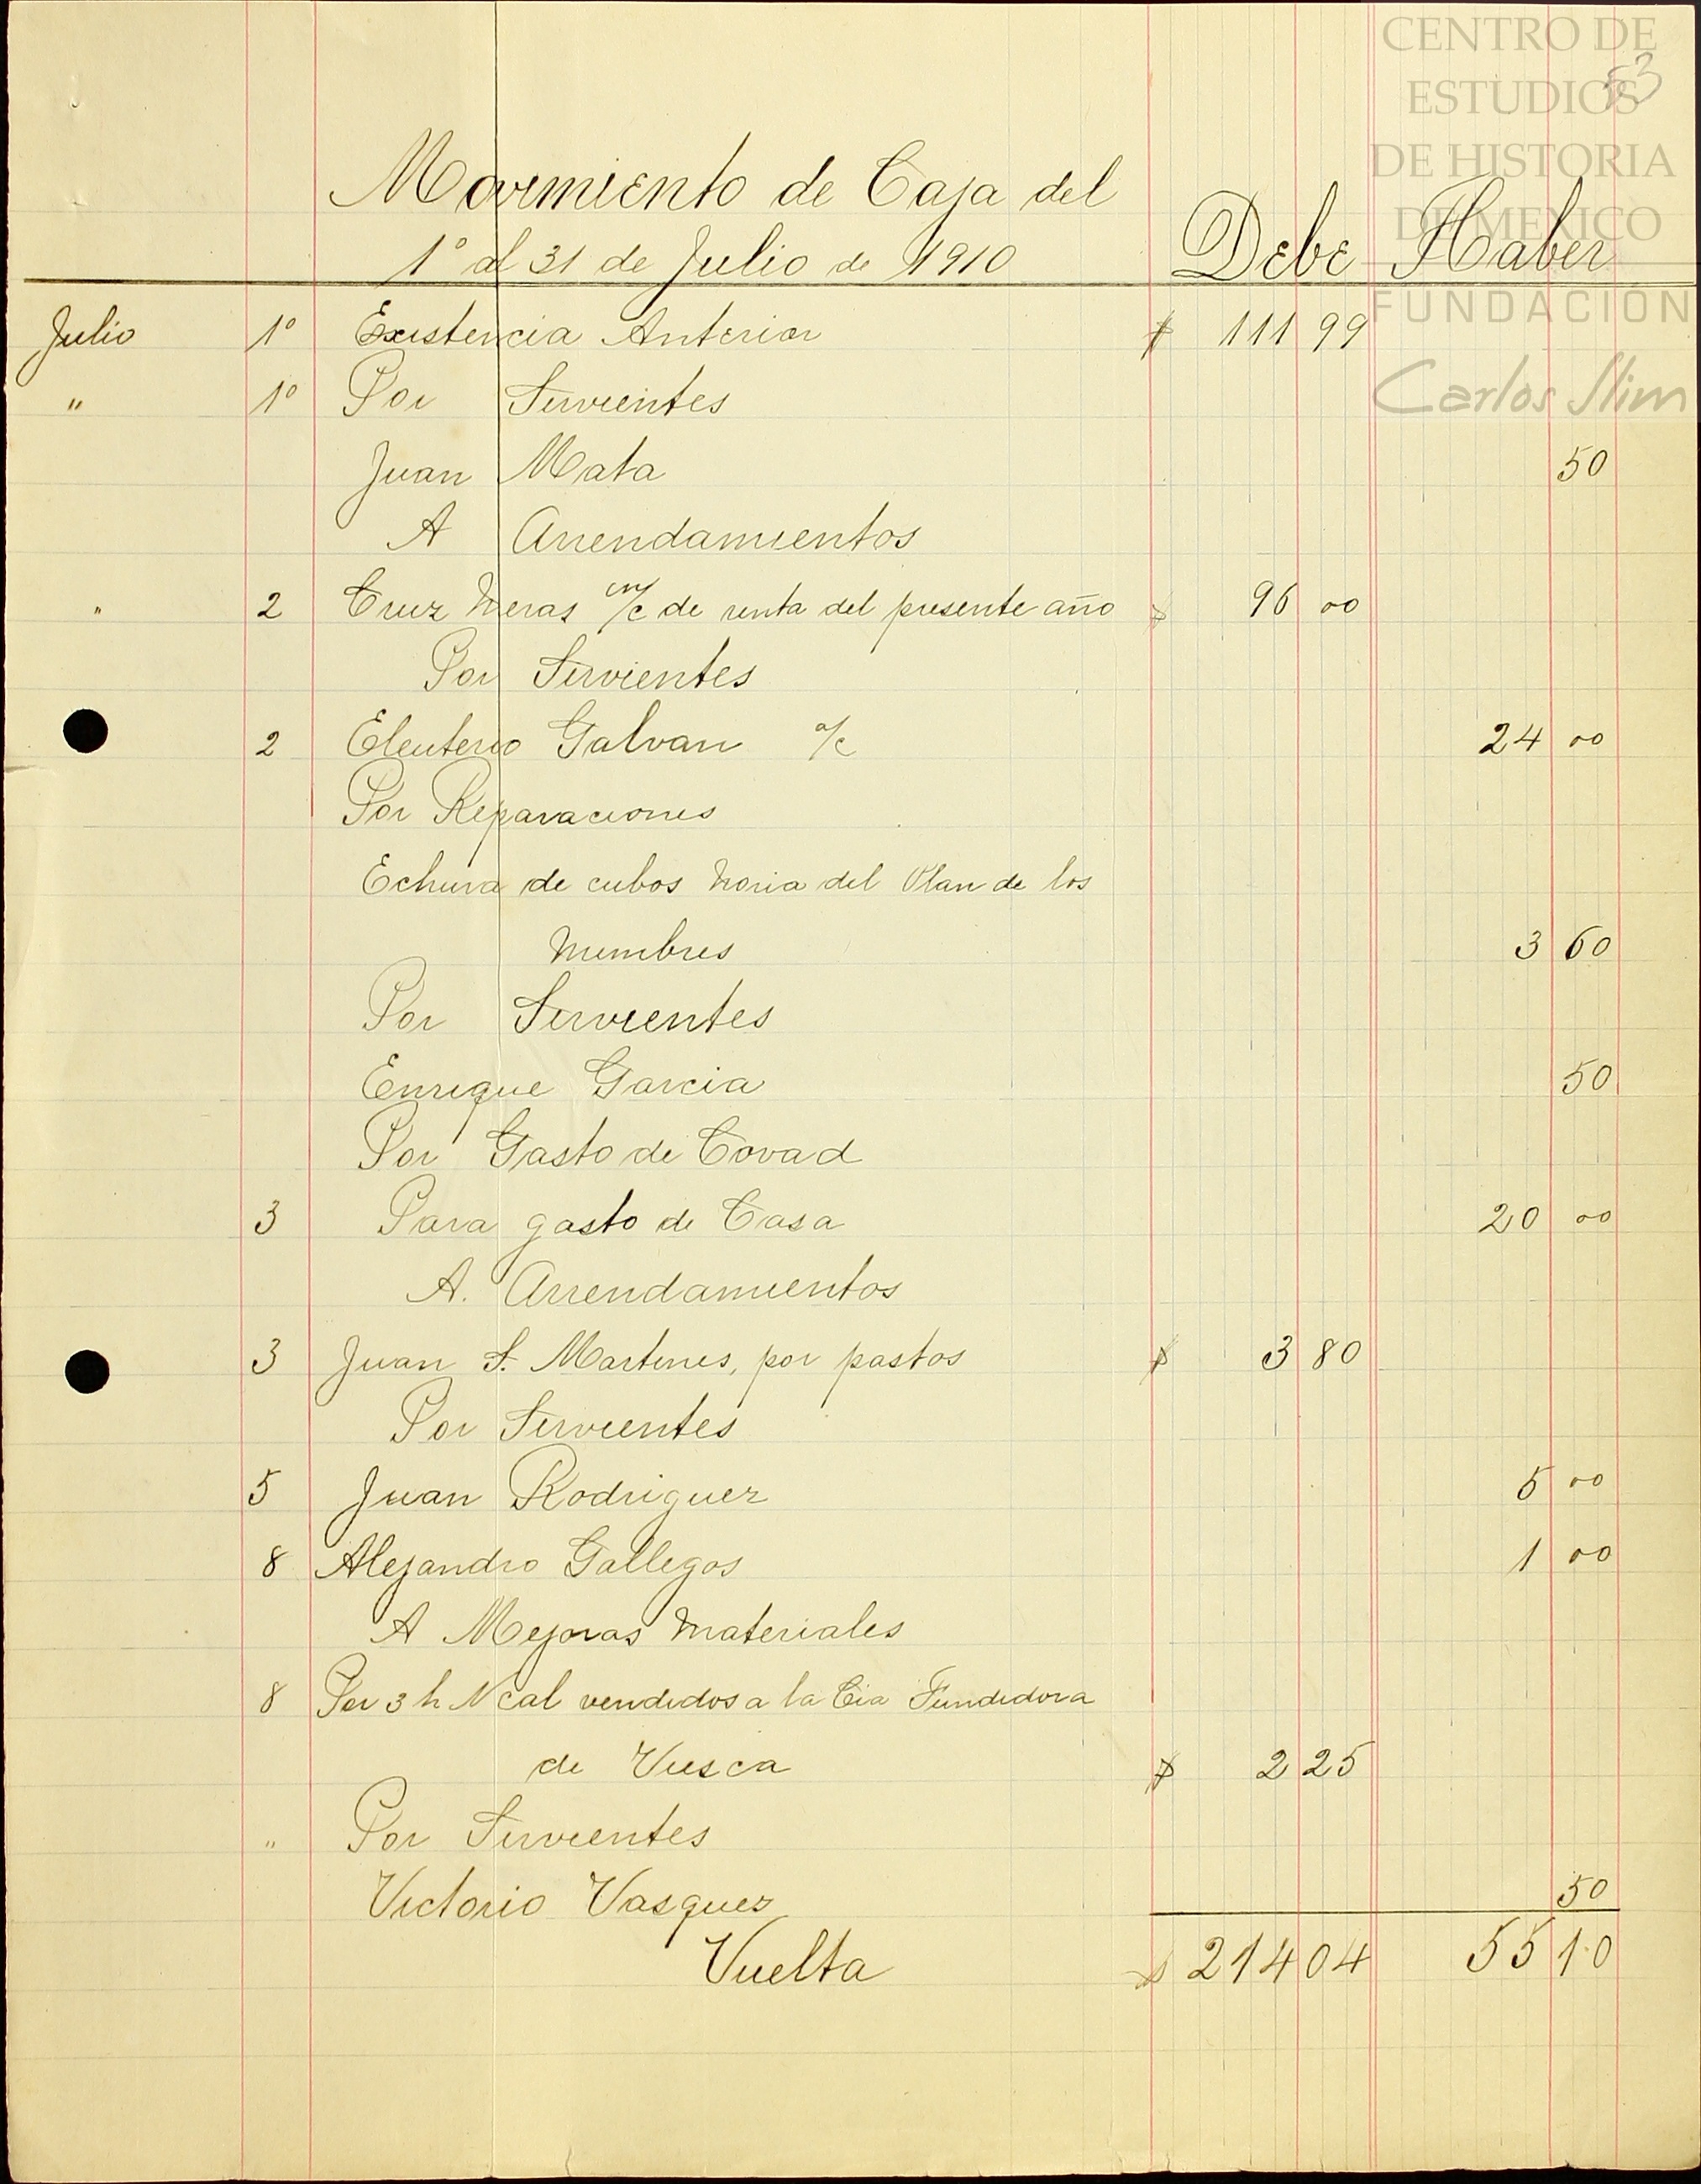 CENTRO DE
ESTUDIOS
DE HISTORIA
DE MEXICO
FUNDACIÓN
Carlos Slim
53
Movimiento de Caja del
1º al 31 de Julio de 1910 Debe Haber
Julio 1º Existencia Anterior $ 111 99
" 1º Por Sirvientes
Juan Mata 50
A Arrendamientos
" 2 Cruz Neras m/c de renta del presente año $ 96 00
Por Sirvientes
2 Eleuterio Galvan a/c 24 00
Por Reparaciones
Echura de cubos Noria del Plan de los
Mimbres 3 60
Por Sirvientes
Enrique Garcia 50
Por Gasto de Covad
3 Para gasto de Casa 20 00
A. Arrendamientos
3 Juan S. Martines, por pastos $ 3 80
Por Sirvientes
5 Juan Rodriguez 5 00
8 Alejandro Gallegos 1 00
A Mejoras Materiales
8 Por 3 h cal vendidos a la Cia Fundidora
de Viesca $ 2 25
" Por Sirvientes
Victorio Vasquez 50
Vuelta $ 214 04 55 10